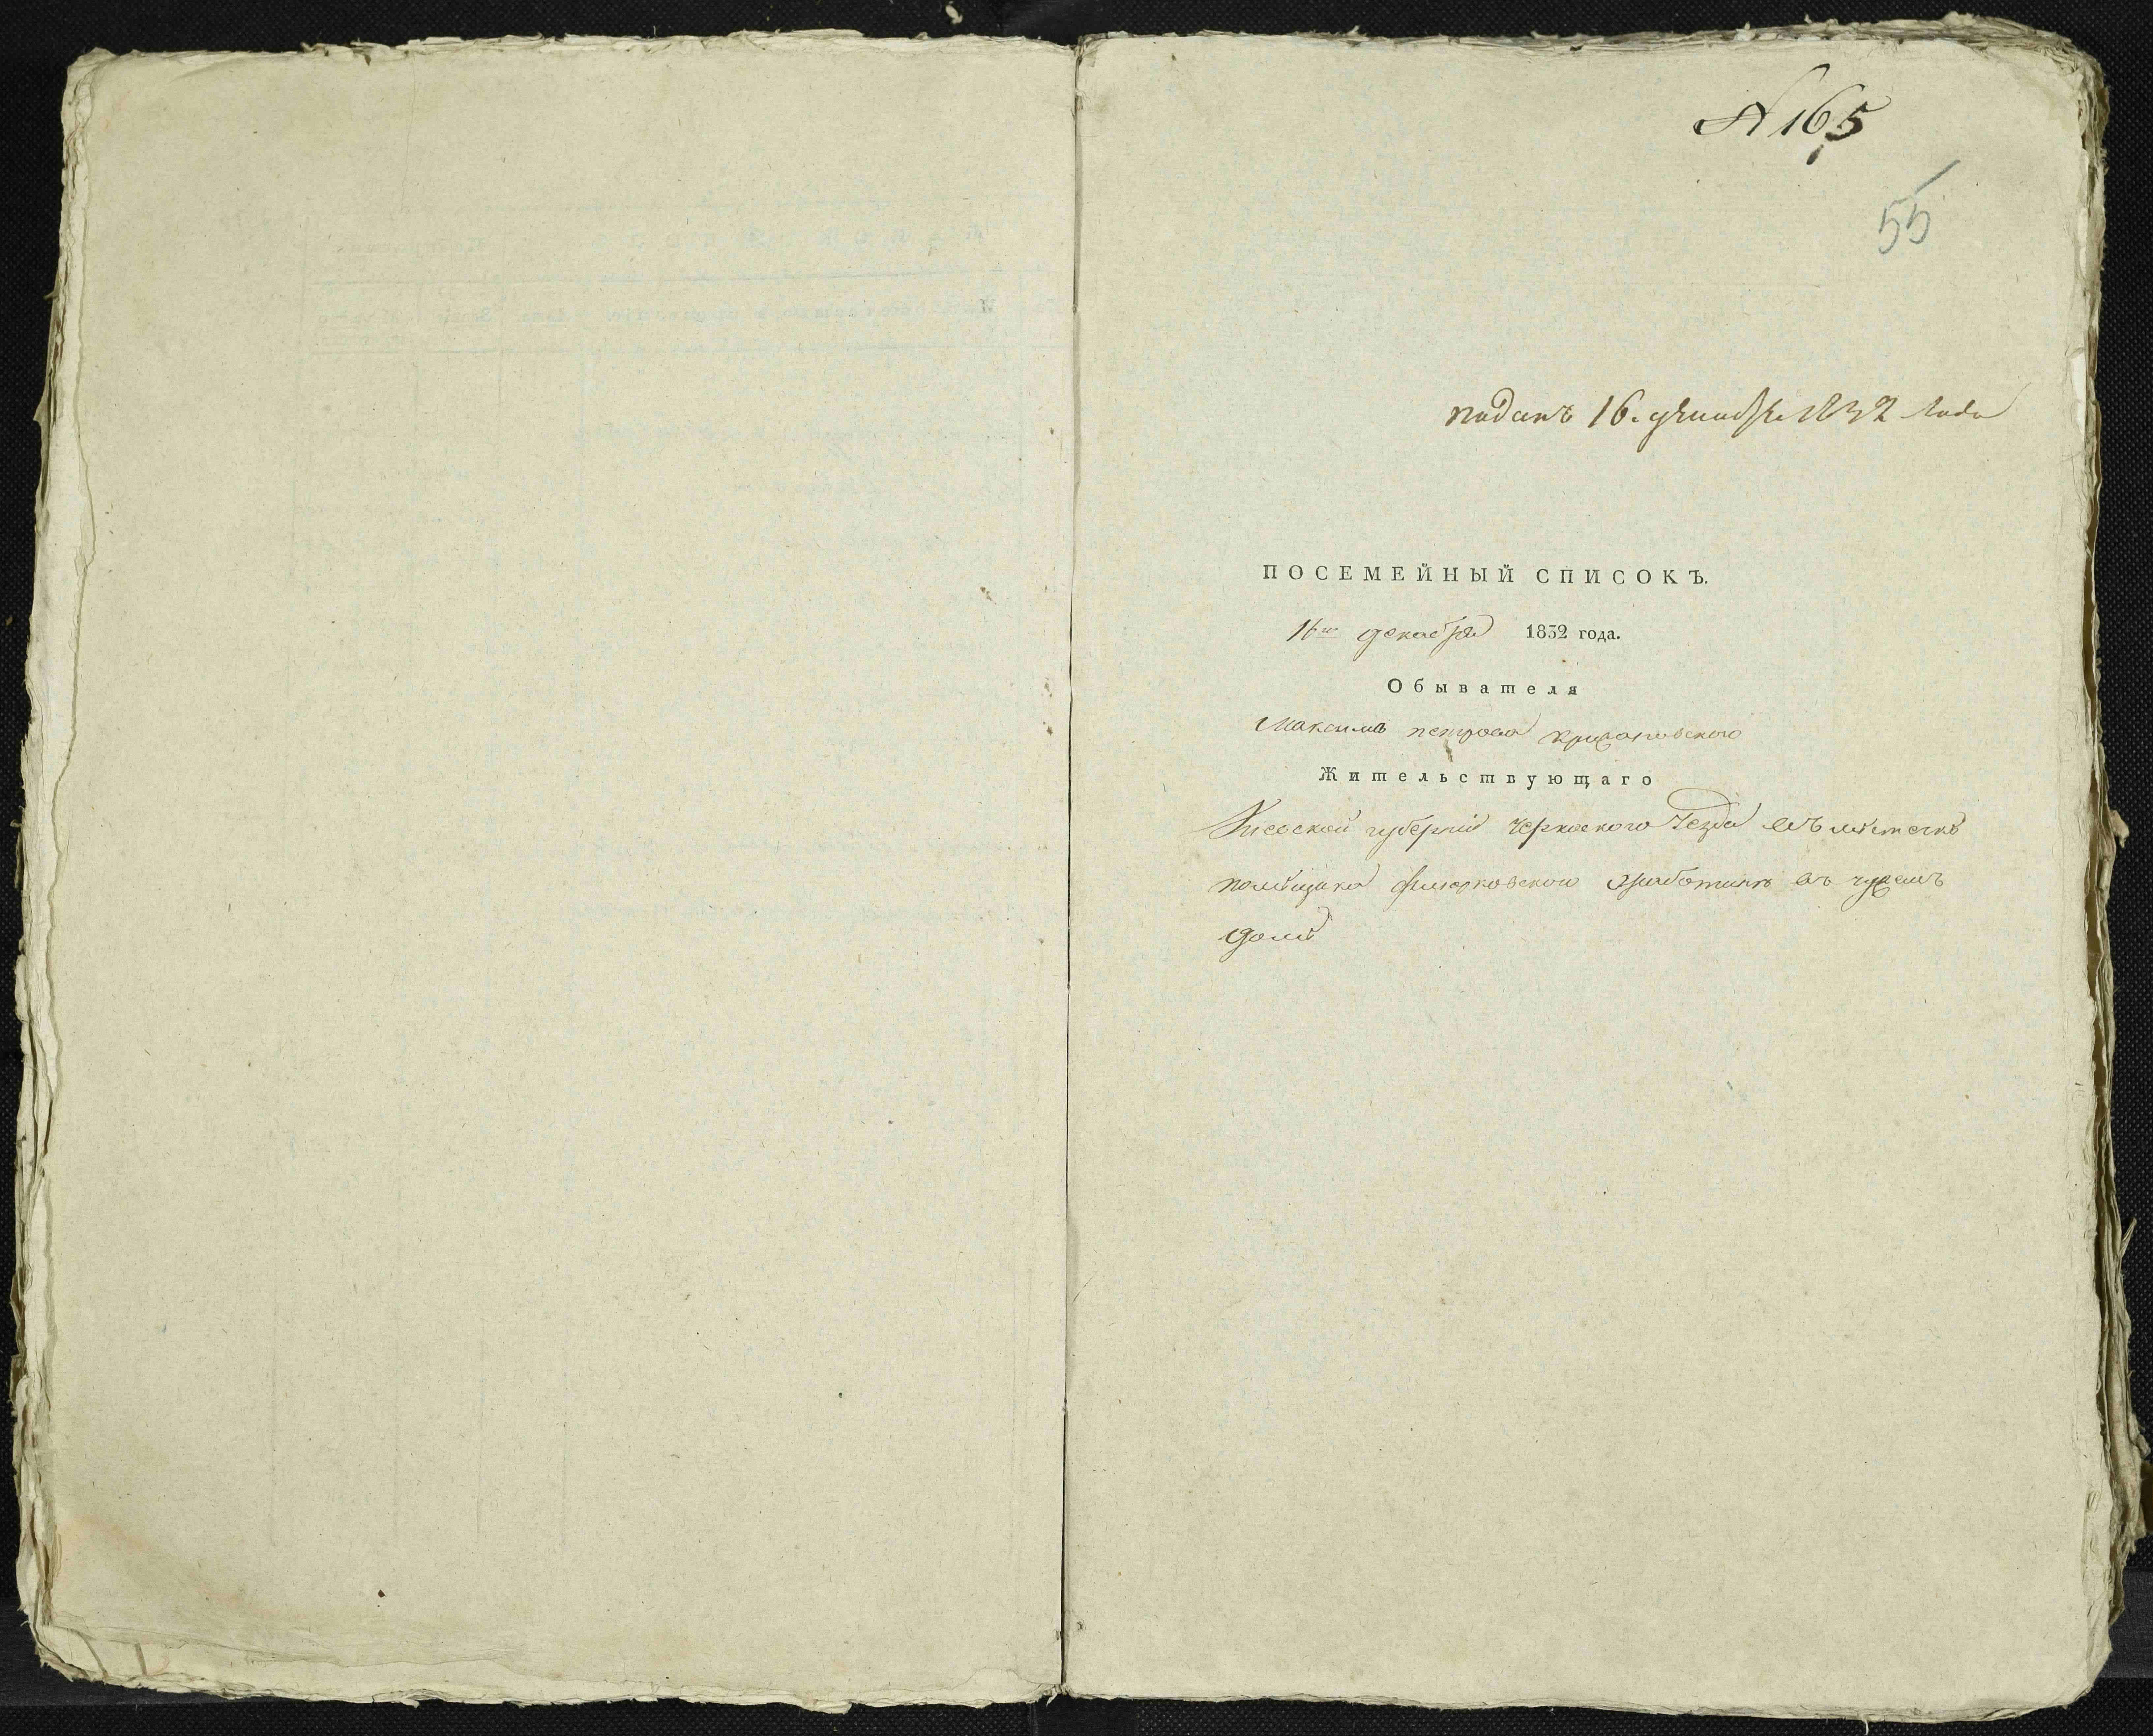 № 165
55
поданъ 16. декабря 1832 года
ПОСЕМЕЙНЫЙ СПИСОКЪ.
16го декабря 1832 года.
Обывателя
Максима петрова
Жительствующаго
Киевской губернiи черкаского уезда местечке
помещика въ чужемъ
доме